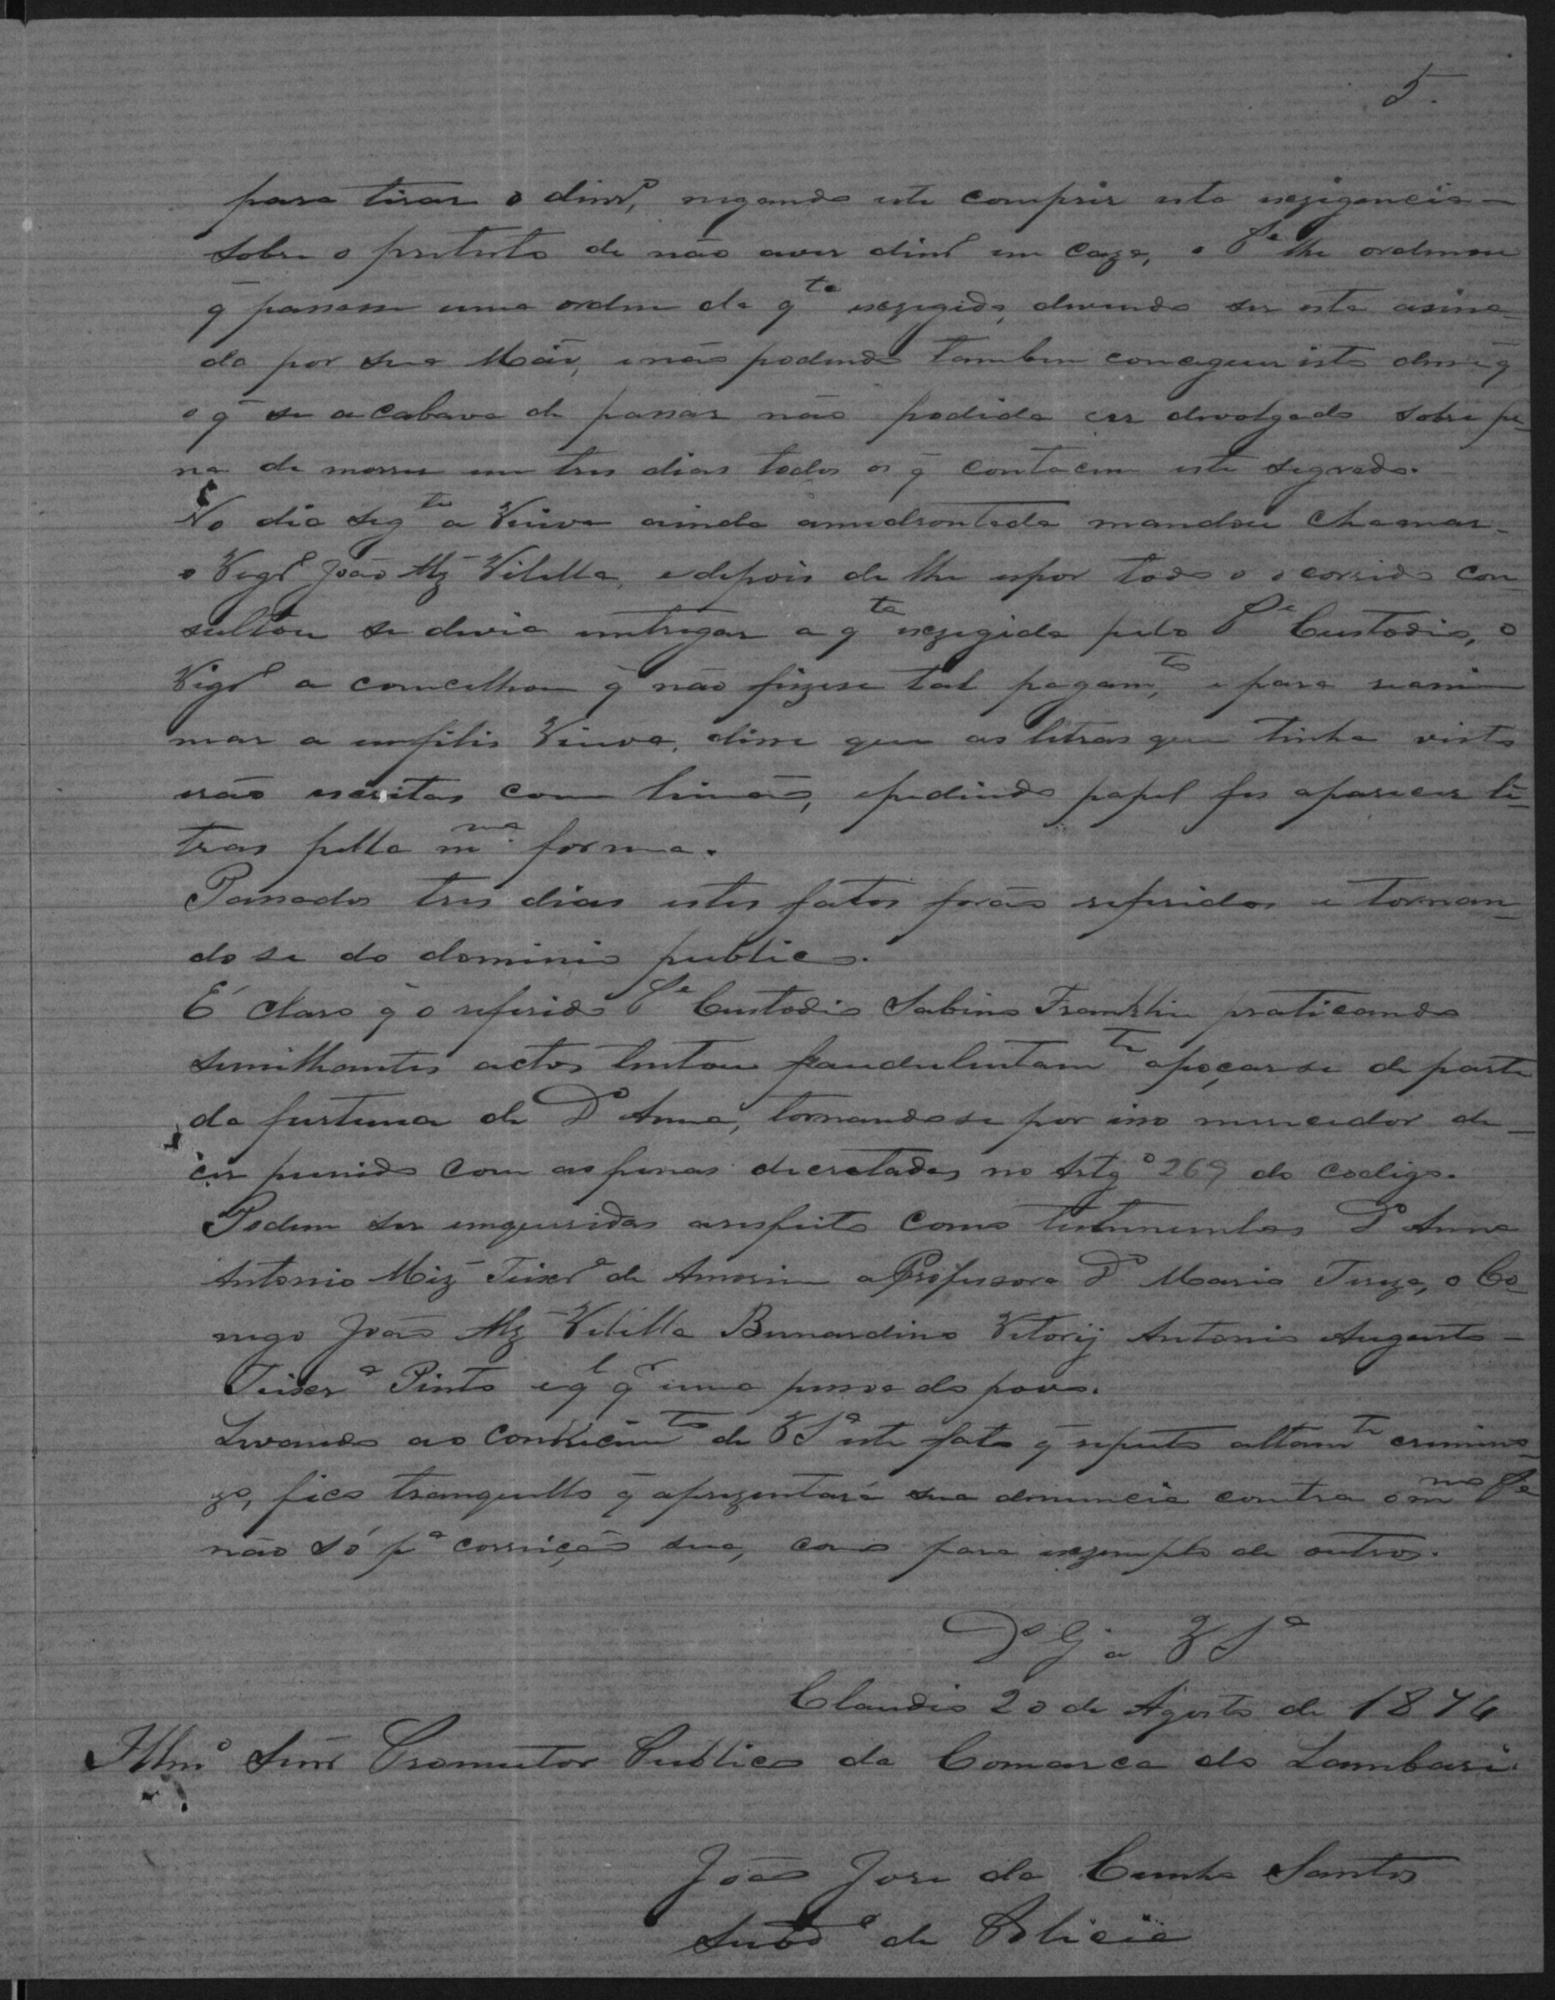 5.
para tirar o dinrº, negando este comprir esta exzigencia
sobre o pretesto de não aver dinrº em caza, o Pe lhe ordenou
q̃ passasse uma ordem da qta exzigida, devendo ser esta asina-
da por sua Mãi, e não podendo tambem conceguir isto disse q̃
o q̃ se acabava de passar não podida cer divolgado sobre pe-
na de morrer em tres dias todos os q̃ contacem este segredo.
No dia segte a Viuva ainda amedrontada mandou chamar
o Vigrº João Alz̃ Vilella, e depois de lhe espor todo o ocorrido con
sultou se devia entregar a qta exzigida pelo Pe Custodio, o
Vigrº a concelhou q̃ não fizese tal pagamto, e para reani
mar a enfilis Viuva, disse que as letras que tinha visto
erão escritas com limão, e pedindo papel fes aparecer le-
tras pella mma forma.
Passados tres dias estes fatos forão referidos e tornan-
do se do dominio publico.
É claro q̃ o referido Pe Custodio Sabino Franklin praticando
similhantes actos tentou fraudulentamte apoçarse de parte
da furtuna de Dª Anna, tornandose por isso mericedor de
cer punido com as penas decretadas no Artgº 269 do codigo.
Podem ser enqueridas a respeito como testemunhas Dª Anna
Antonio Miz̃ Teixrª de Amorim a Professora Dª Maria Tereza, o Co-
nego João Alz̃ Vilella Bernardino Vitorij Antonio Augusto
Teixerª Pinto e ql qr uma pessoa do povo.
Levando ao conhecimto de VSª este fato q̃ reputo altamte crimino-
zo, fico tranquillo q̃ aprezentará sua denuncia contra o mmo Pe
não só pª correição sua, como para exzemplo de outros.
Ds Gº a VSª
Claudio 20 de Agosto de 1874
Illmº Snr̃ Promutor Publico da Comarca do Lambari.
João Jose da Cunha Santos
Subdº de Policia